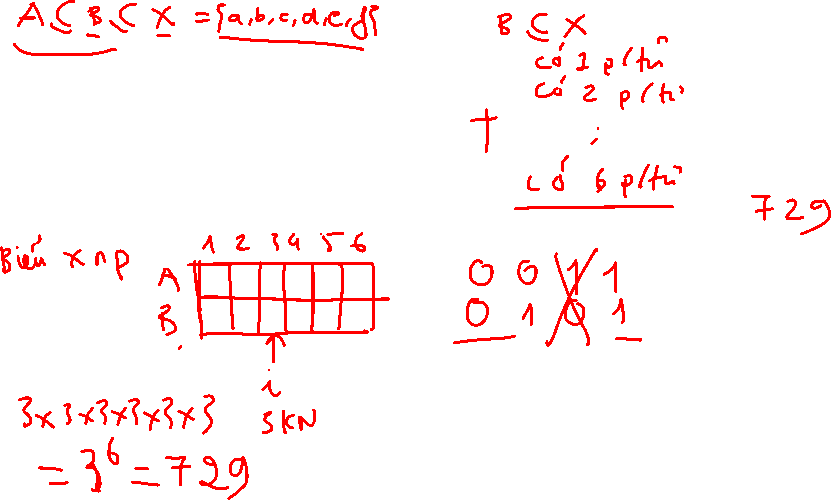 A ⊂ B ⊂ X = {a,b,c,d,e,f}
B ⊂ X
có 1 p/tử
có 2 p/tử
+ ⋮
có 6 p/tử
729
Biến x n p
1 2 3 4 5 6
A
B
0 0 1 1
0 1 0 1
i
3KN
3x3x3x3x3x3
= 3^6 = 729